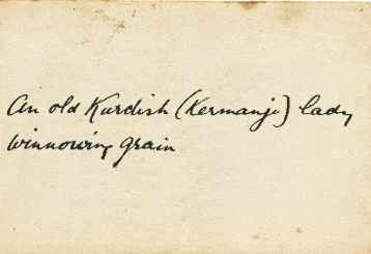 An old Kurdish (Kermanji) lady
winnowing grain